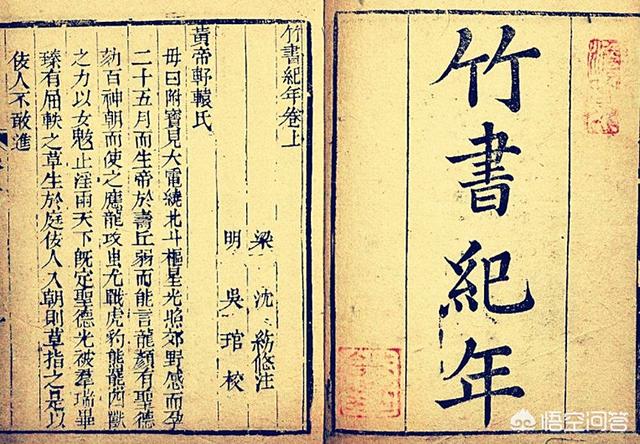 竹書紀年
竹書紀年卷上
梁 沈約 注
明 吳琯校
黃帝軒轅氏
母曰附寶見大電繞北斗樞星光照郊野感而孕
二十五月而生帝於壽丘弱而能言龍顏有聖德
劾百神朝而使之應龍攻蚩尤戰虎豹熊羆四獸
之力以女魃止淫雨天下既定聖德光被羣瑞畢
臻有屈軼之草生於庭佞人入朝則草指之是以
佞人不敢進
悟空问答